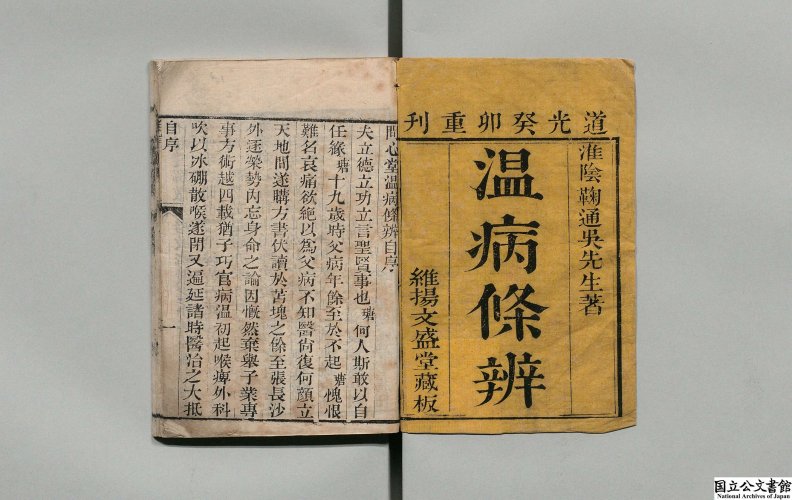 道光癸卯重刊
淮陰鞠通吳先生著
温病條辨
維揚文盛堂藏板
問心堂温病條辨自序
夫立德立功立言聖賢事也瑭何人斯敢以自
任緣瑭十九歲時父病年餘至於不起瑭愧恨
難名哀痛欲絶以爲父病不知醫尙復何顔立
天地間遂購方書伏讀於苦塊之餘至張長沙
外逐榮勢內忘身命之論因慨然棄舉子業專
事方術越四載猶子巧官病温初起喉痺外科
吹以冰硼散喉遂閉又遍延諸時醫治之大抵
自序
一
国立公文書館
National Archives of Japan